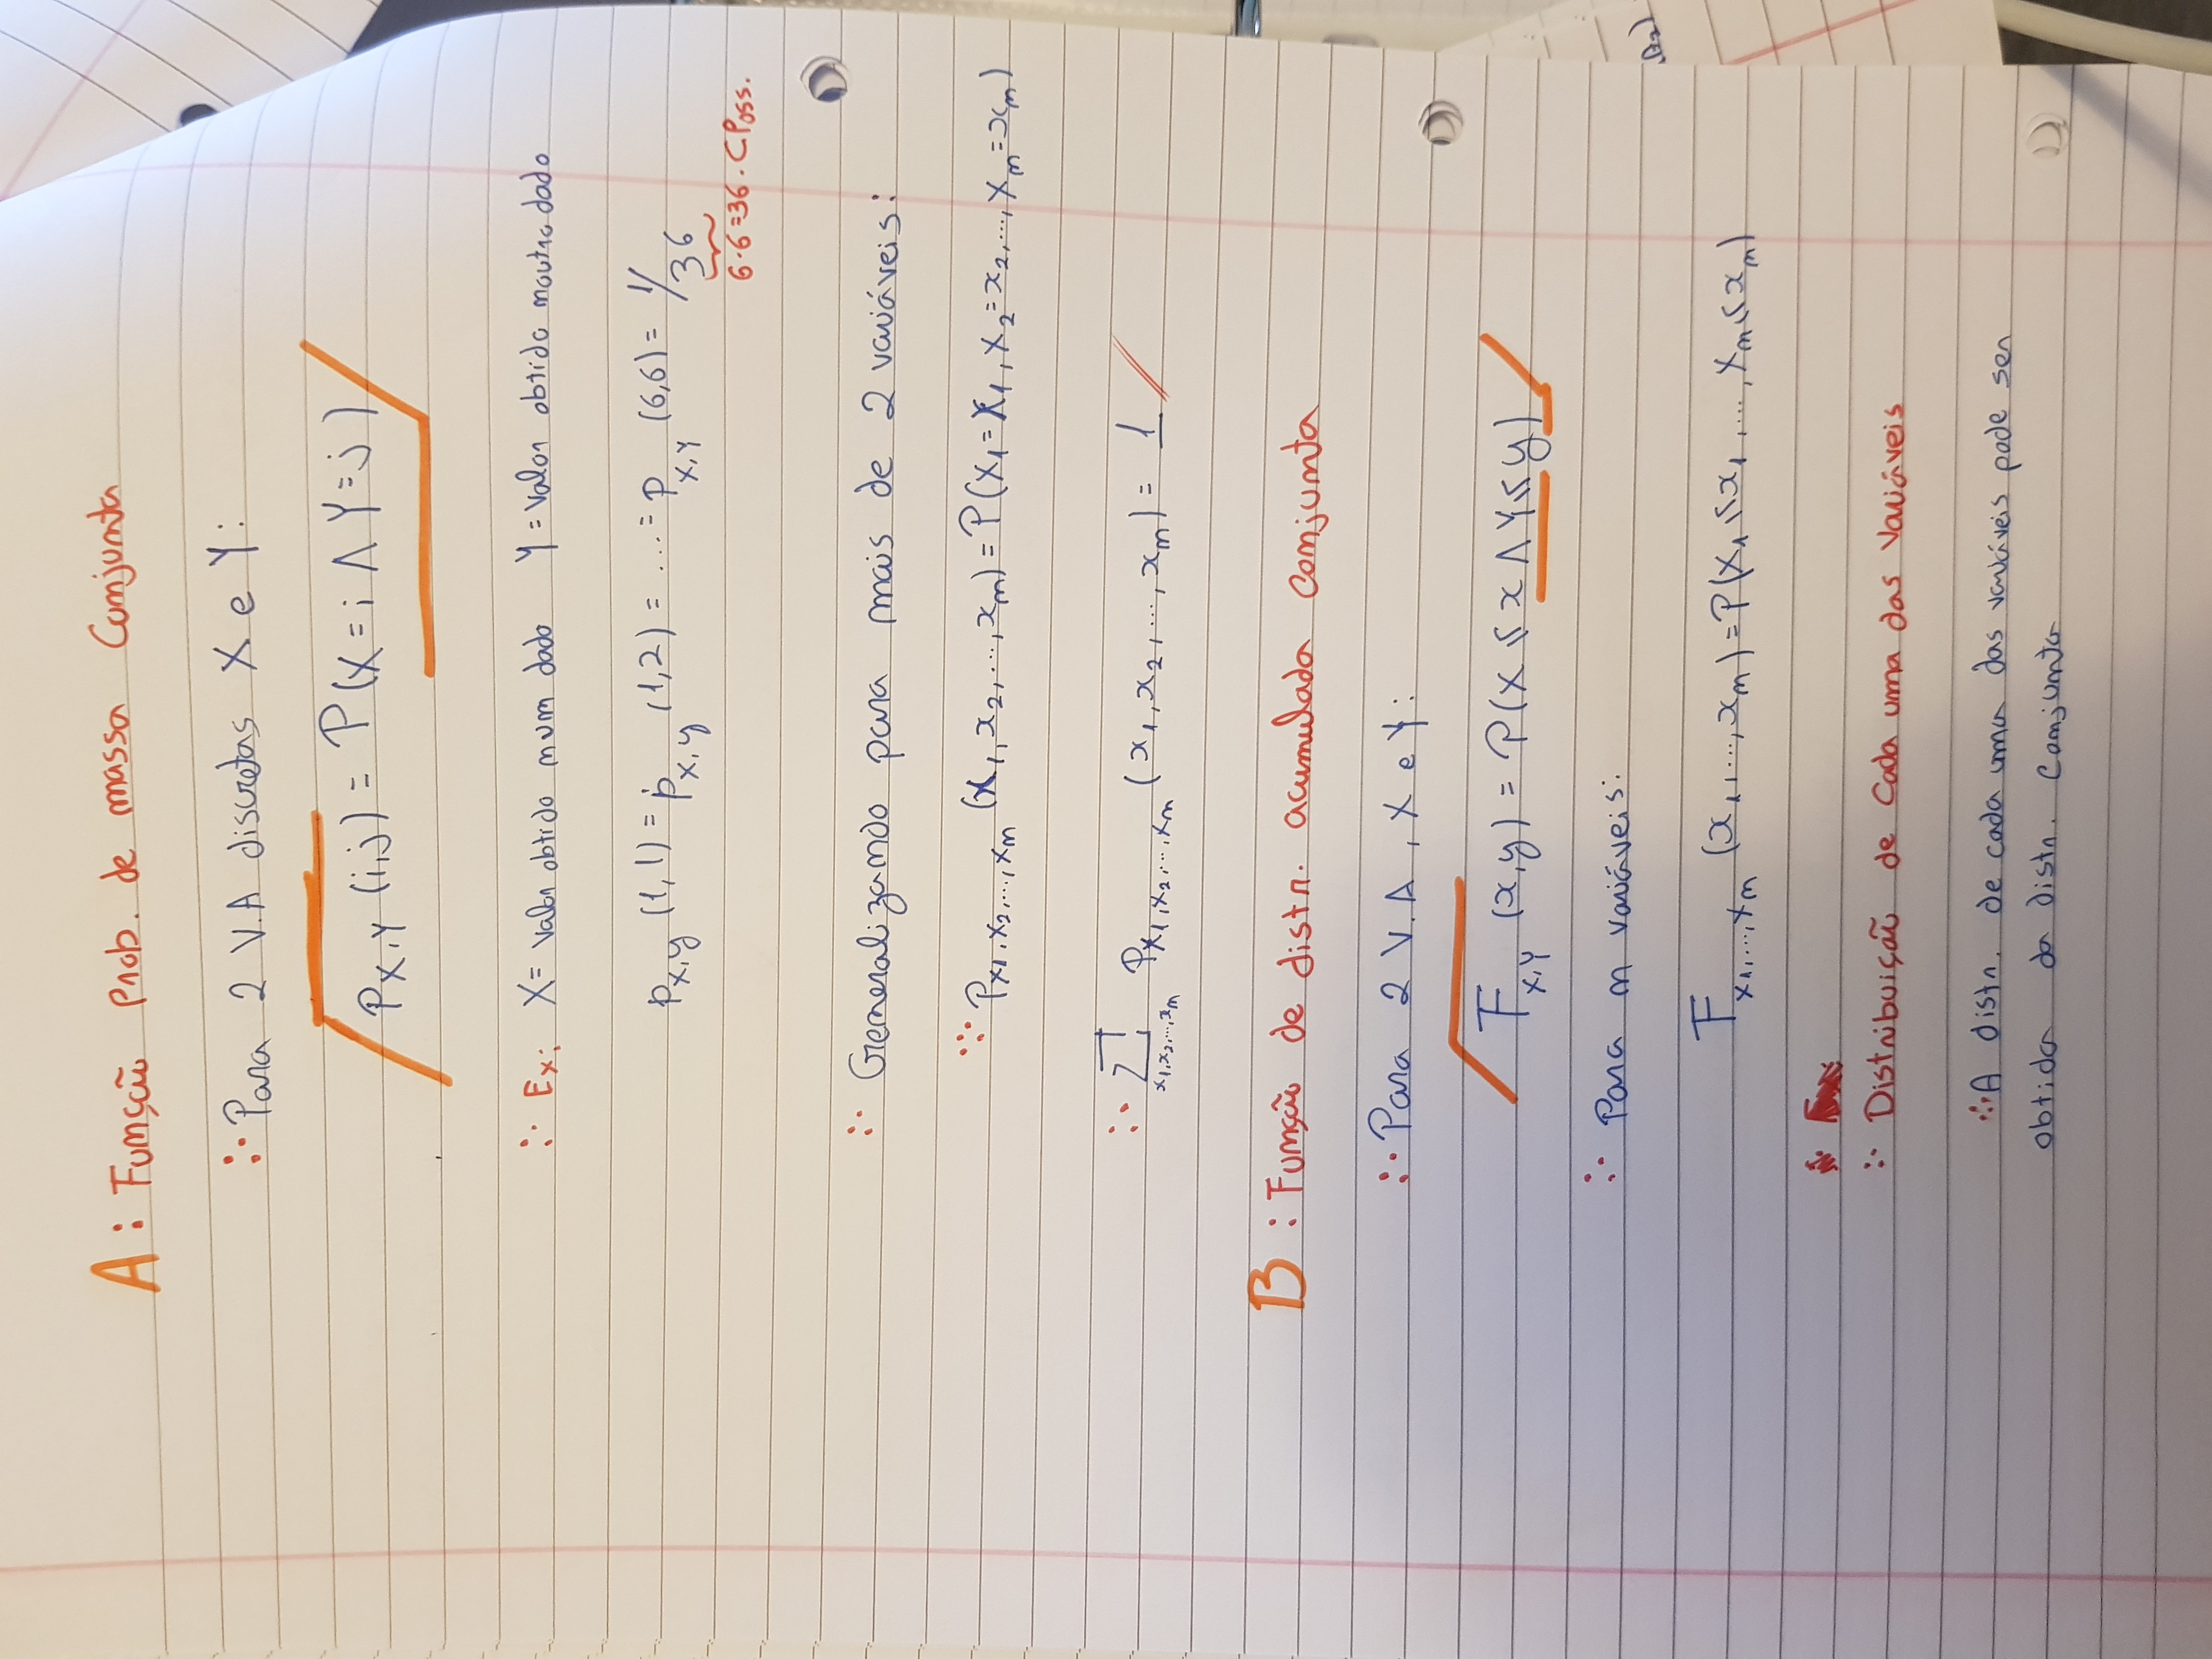 A : Função Prob. de massa Conjunta
∴ Para 2 V.A discretas X e Y:
P_X,Y (i,j) = P(X = i ∧ Y = j)
∴ Ex: X = valor obtido num dado Y = valor obtido noutro dado
p_X,y (1,1) = p_X,y (1,2) = ... = p_X,Y (6,6) = 1/36
6·6=36. C Poss.
∴ Generalizando para mais de 2 variáveis:
∴ P_X1,X2,...,Xn (x1, x2, ..., xn) = P(X1 = x1, X2 = x2, ..., Xn = xn)
∴ Σ_x1,x2,...,xn P_X1,X2,...,Xn (x1, x2, ..., xn) = 1 //
B : Função de distr. acumulada conjunta
∴ Para 2 V.A, X e Y:
F_X,Y (x,y) = P(X ≤ x ∧ Y ≤ y)
∴ Para n variáveis:
F_X1,...,Xn (x1, ..., xn) = P(X1 ≤ x1, ..., Xn ≤ xn)
∴ Distribuição de Cada uma das Variáveis
∴ A distr. de cada uma das variáveis pode ser
obtida da distr. Conjunta